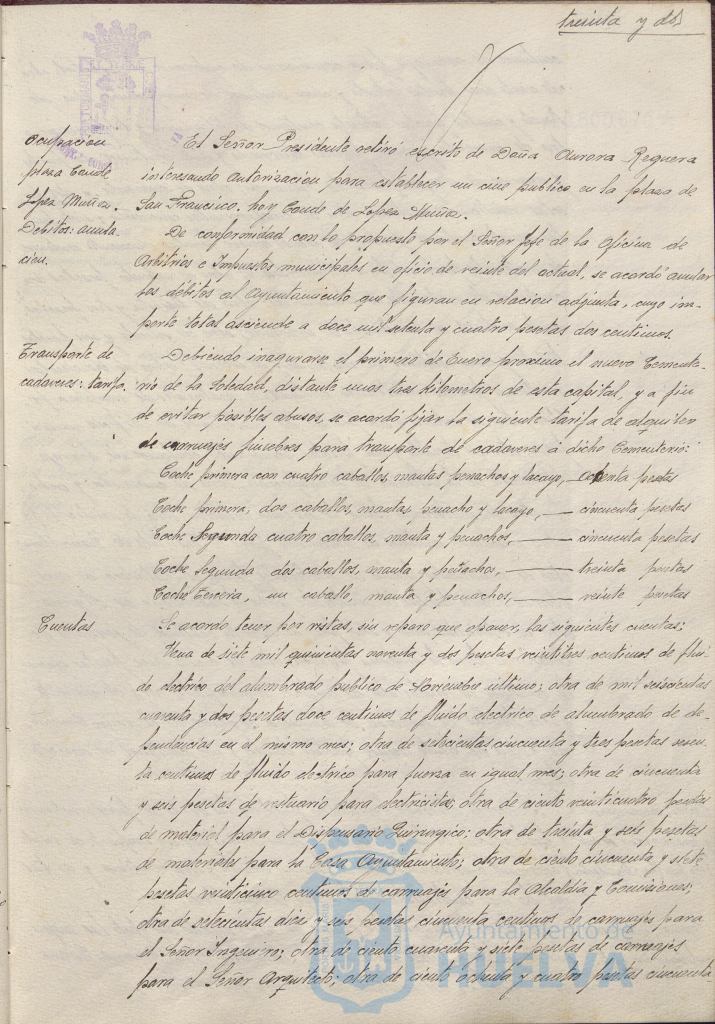 treinta y dos
Ocupacion
plaza Conde
Lopez Muñoz.
El Señor Presidente retiró escrito de Doña Aurora Reguera
interesando autorizacion para establecer un cine publico en la plaza de
San Francisco, hoy Conde de Lopez Muñoz.
Debitos: anula
cion.
De conformidad con lo propuesto por el Señor Jefe de la Oficina de
Arbitrios e Impuestos municipales en oficio de veinte del actual, se acordó anular
los débitos al Ayuntamiento que figuran en relacion adjunta, cuyo im-
porte total asciende a doce mil setenta y cuatro pesetas dos centimos.
Transporte de
cadaveres: tarifa.
Debiendo inagurarse el primero de Enero proximo el nuevo Cemente-
rio de la Soledad, distante unos tres kilometros de esta capital, y a fin
de evitar posibles abusos, se acordó fijar la siguiente tarifa de alquiler
de carruajes funebres para transporte de cadaveres á dicho Cementerio:
Coche primera con cuatro caballos, mantas penachos y lacayo, pesetas
Coche primera, dos caballos, mantas, penacho y lacayo, cincuenta pesetas
Coche Segunda cuatro caballos, manta y penachos, cincuenta pesetas
Coche Segunda dos caballos, manta y penachos, treinta pesetas
Coche Tercera, un caballo, manta y penachos, veinte pesetas
Cuentas
Se acordo tener por vistas, sin reparo que oponer, las siguientes cuentas:
Una de siete mil quinientas noventa y dos pesetas veintitres centimos de flui-
do electrico del alumbrado publico de Noviembre ultimo; otra de mil seiscientas
cuarenta y dos pesetas doce centimos de fluido electrico de alumbrado de de-
pendencias en el mismo mes; otra de setecientas cincuenta y tres pesetas sesen-
ta centimos de fluido electrico para fuerza en igual mes; otra de cincuenta
y seis pesetas de vestuario para electricistas; otra de ciento veinticuatro pesetas
de material para el Dispensario Quirurgico; otra de treinta y seis pesetas
de materiales para la Casa Ayuntamiento; otra de ciento cincuenta y siete
pesetas veinticinco centimos de carruajes para la Alcaldia y Comisiones;
otra de setecientas diez y seis pesetas cincuenta centimos de carruajes para
el Señor Ingeniero; otra de ciento cuarenta y siete pesetas de carruajes
para el Señor Arquitecto; otra de ciento ochenta y cuatro pesetas cincuenta
Ayuntamiento de
HUELVA